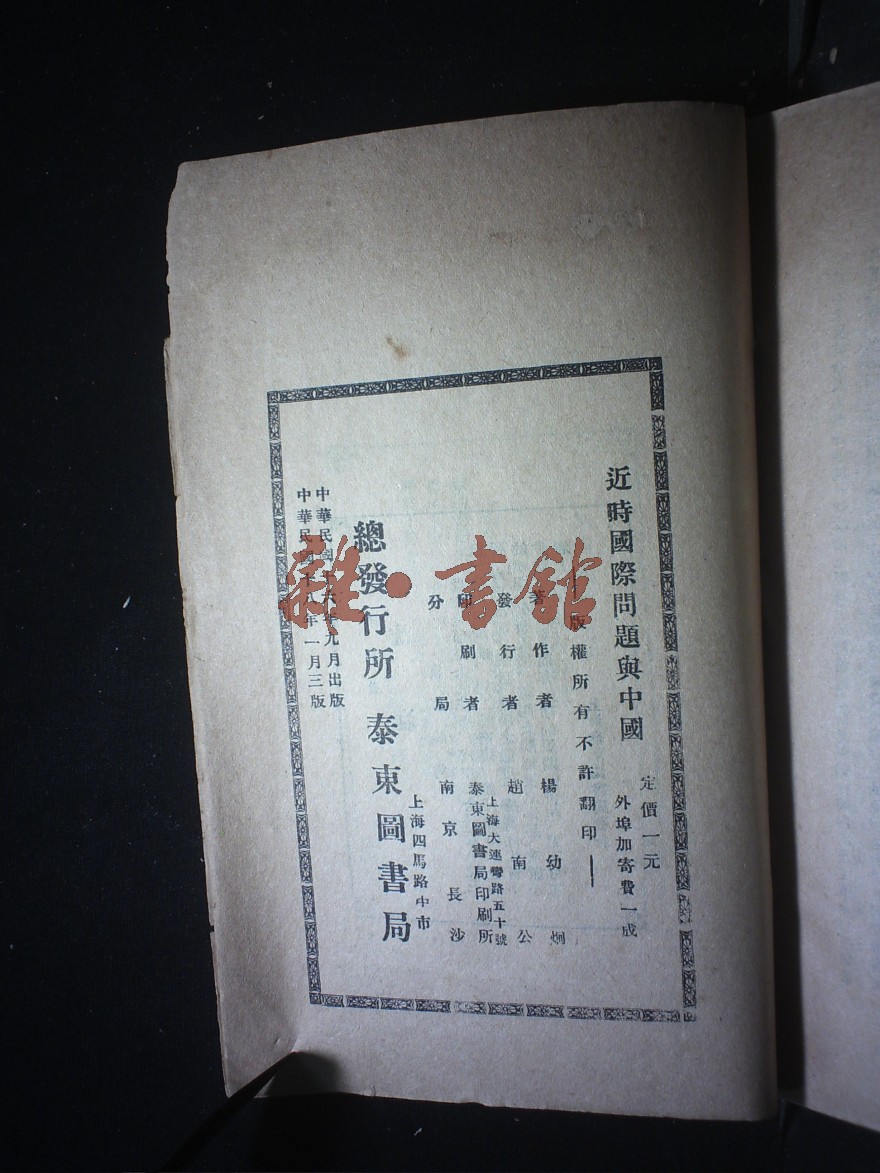 近時國際問題與中國
定價一元
外埠加寄費一成
版權所有不許翻印
著作者 楊幼炯
發行者 趙南公
印刷者 上海大連灣路五十號
泰東圖書局印刷所
分局 南京 長沙
上海四馬路中市
總發行所 泰東圖書局
中華民國十六年九月出版
中華民國十八年一月三版
雜·書館